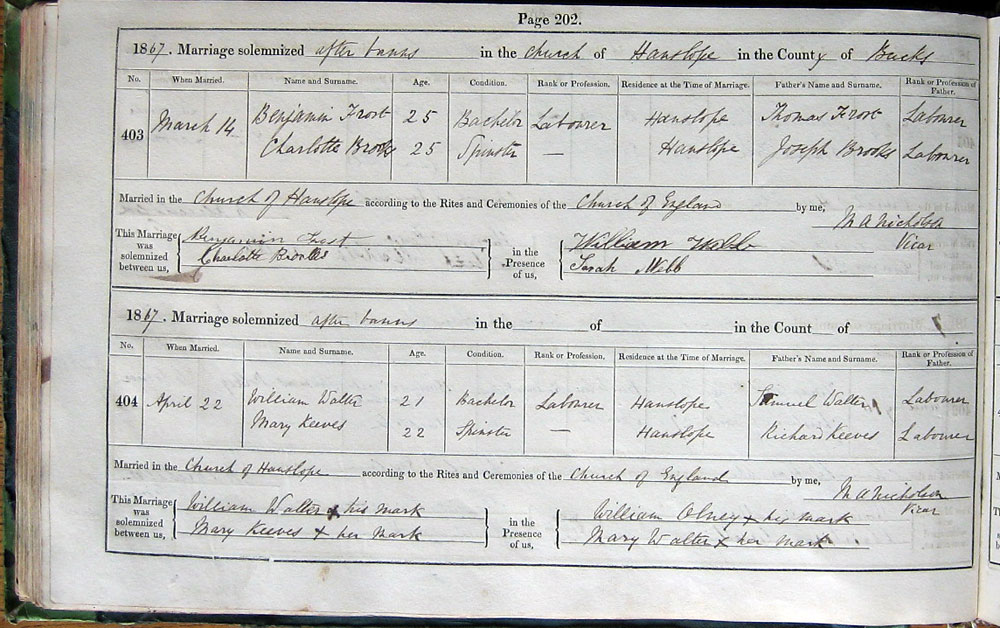 Page 202.
1867. Marriage solemnized after banns in the Church of Hanslope in the County of Bucks
No. When Married. Name and Surname. Age. Condition. Rank or Profession. Residence at the Time of Marriage. Father's Name and Surname. Rank or Profession of Father.
403 March 14 Benjamin Frost 25 Bachelor Labourer Hanslope Thomas Frost Labourer
Charlotte Brooks 25 Spinster — Hanslope Joseph Brooks Labourer
Married in the Church of Hanslope according to the Rites and Ceremonies of the Church of England by me,
M A Nicholson
Vicar
This Marriage was solemnized between us, Benjamin Frost in the Presence of us, William Webb
Charlotte Brooks Sarah Webb
1867. Marriage solemnized after banns in the of in the Count of
No. When Married. Name and Surname. Age. Condition. Rank or Profession. Residence at the Time of Marriage. Father's Name and Surname. Rank or Profession of Father.
404 April 22 William Walter 21 Bachelor Labourer Hanslope Samuel Walter Labourer
Mary Keeves 22 Spinster — Hanslope Richard Keeves Labourer
Married in the Church of Hanslope according to the Rites and Ceremonies of the Church of England by me,
M A Nicholson
Vicar
This Marriage was solemnized between us, William Walter x his mark in the Presence of us, William Olney x his mark
Mary Keeves x her mark Mary Walter x her mark